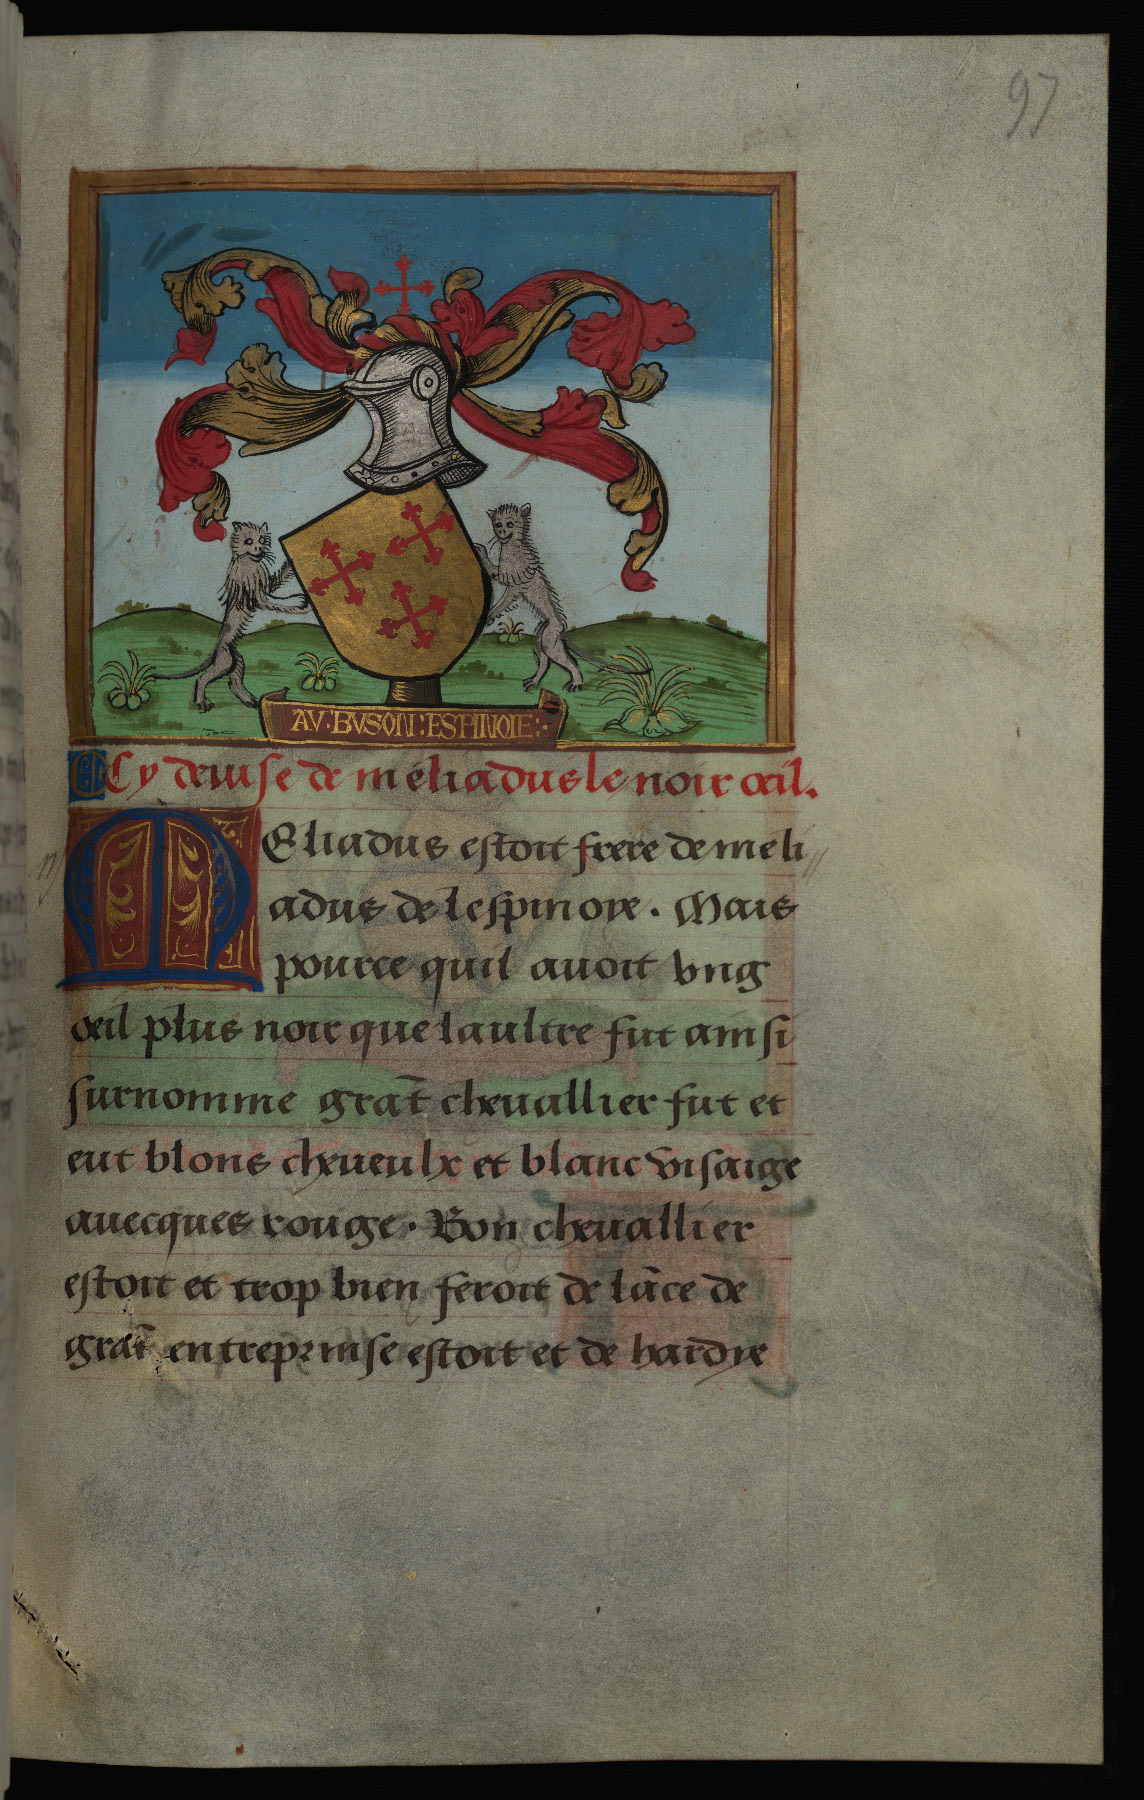 97
AV·BVSON:ESPINOIE:-
Cy deuise de meliadus le noir œil.
MEliadus estoit frere de meli
adus de lespinoye. Mais
pource quil auoit vng
œil plus noir que laultre fut ainsi
surnomme grãt cheuallier fut et
eut blons cheueulx et blanc visaige
auecques rouge. Bon cheuallier
estoit et trop bien feroit de lãce de
grãt entreprinse estoit et de hardye